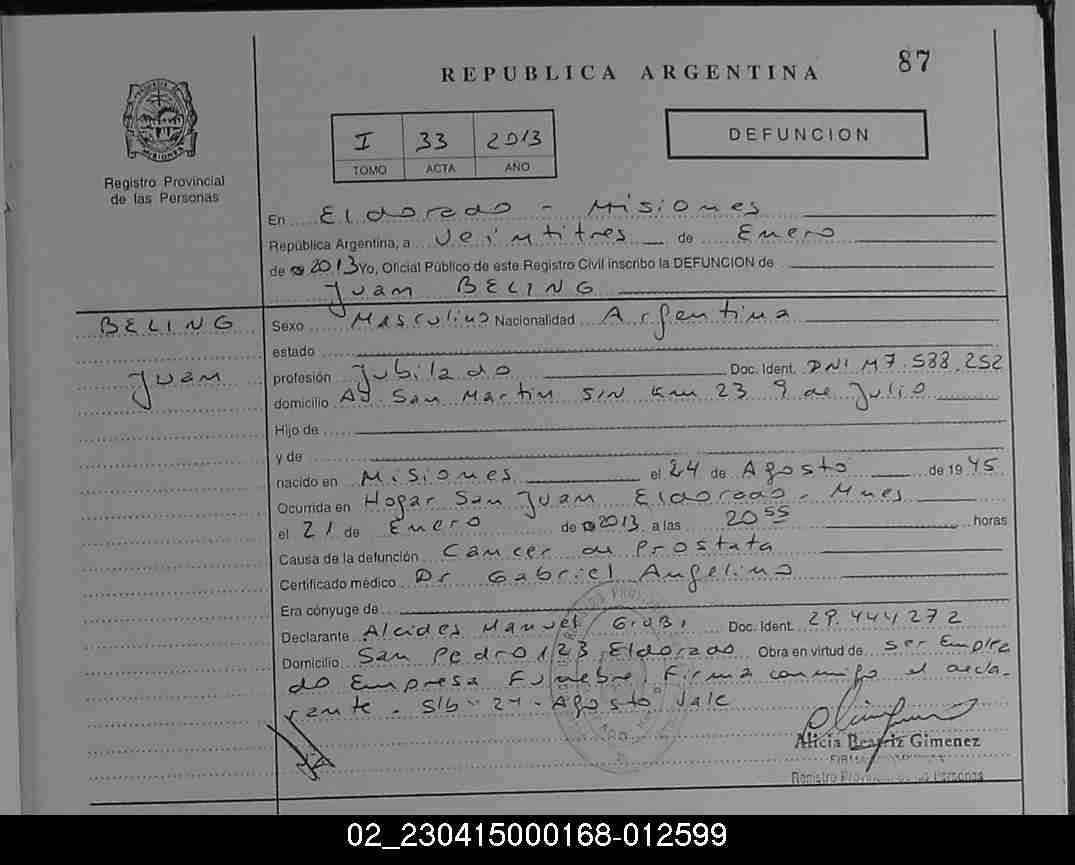 87
REPUBLICA ARGENTINA
I 33 2013
TOMO ACTA AÑO
DEFUNCION
Registro Provincial
de las Personas
En Eldorado - Misiones
República Argentina, a Veintitres de Enero
de 2013 Yo, Oficial Público de este Registro Civil inscribo la DEFUNCION de
Juan BELING
BELING
Juan
Sexo Masculino Nacionalidad Argentina
estado
profesión Jubilado Doc. Ident. DNI M7.588.252
domicilio Av San Martin S/N Km 23 9 de Julio
Hijo de
y de
nacido en Misiones el 24 de Agosto de 1945
Ocurrida en Hogar San Juan Eldorado - Mnes
el 21 de Enero de 2013 a las 20 55 horas
Causa de la defunción Cancer de Prostata
Certificado médico Dr Gabriel Angelino
Era cónyuge de
Declarante Alcides Manuel Doc. Ident. 29.444272
Domicilio San Pedro 123 Eldorado Obra en virtud de ser Emplea
do Empresa Funebre. Firma conmigo el decla-
rante - S/b - 24 - Agosto Vale
Alicia Beatriz Gimenez
Registro Provincial de las Personas
02_230415000168-012599